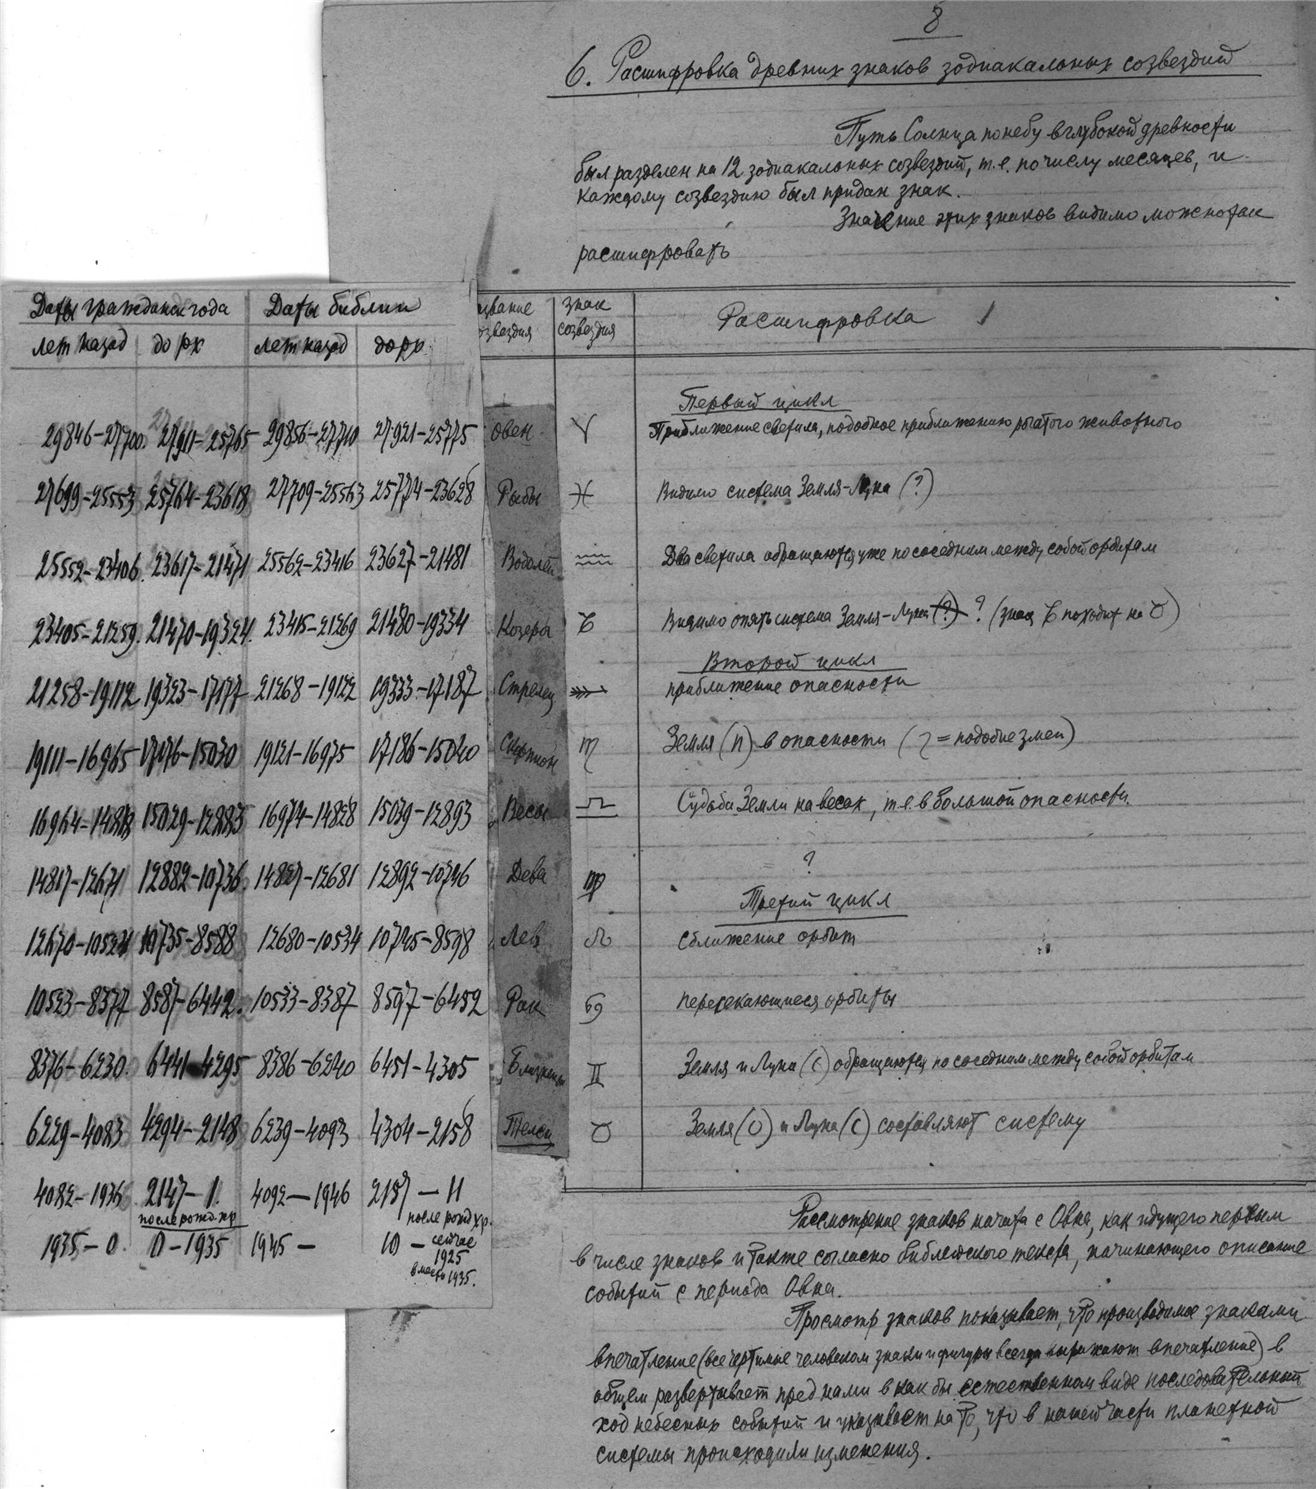 8
6. Расшифровка древних знаков зодиакальных созвездий
Путь Солнца по небу в глубокой древности
был разделен на 12 зодиакальных созвездий, т.е. по числу месяцев, и
каждому созвездию был придан знак.
Значение этих знаков видимо можно так
расшифровать
Даты гражданск года Даты библии
лет назад до рх лет назад до рх
звание созвездия знак созвездия Расшифровка
Первый цикл
29846-27700 27911-25765 29856-27710 27921-25775 Овен ♈ Приближение светила, подобное приближению рогатого животного
27699-25553 25764-23618 27709-25563 25774-23628 Рыбы ♓ Видимо система Земля-Луна (?)
25552-23406 23617-21471 25562-23416 23627-21481 Водолей ♒ Два светила обращаются уже по соседним между собой орбитам
23405-21259 21470-19324 23415-21269 21480-19334 Козерог ♉ Видимо опять система Земля-Луна (?) ? (знак ♉ походит на ♉)
Второй цикл
21258-19112 19323-17177 21268-19122 19333-17187 Стрелец приближение опасности
19111-16965 17176-15030 19121-16975 17186-15040 Скорпион ♏ Земля (п) в опасности (= подобие змеи)
16964-14818 15029-12883 16974-14828 15039-12893 Весы ♎ Судьба Земли на весах, т.е. в большой опасности.
14817-12671 12882-10736 14827-12681 12892-10746 Дева ♍ ?
Третий цикл
12670-10524 10735-8588 12680-10534 10745-8598 Лев ♌ Сближение орбит
10523-8377 8587-6442 10533-8387 8597-6452 Рак ♋ пересекающиеся орбиты
8376-6230 6441-4295 8386-6240 6451-4305 Близнецы ♊ Земля и Луна (с) обращаются по соседним между собой орбитам
6229-4083 4294-2148 6239-4093 4304-2158 Телец ♉ Земля (О) и Луна (С) составляют систему
4082-1936 2147-1 4092-1946 2157-11
после рожд хр после рожд хр.
1935-0 0-1935 1945- 10 - сейчас
1925
вместо 1935.
Рассмотрение знаков начато с Овна, как идущего первым
в числе знаков и также согласно библейского текста, начинающего описание
событий с периода Овна.
Просмотр знаков показывает, что производимое знаками
впечатление (все чертимые человеком знаки и фигуры всегда выражают впечатление) в
общем развертывает пред нами в как бы естественном виде последовательный
ход небесных событий и указывает на то, что в нашей части планетной
системы происходили изменения.